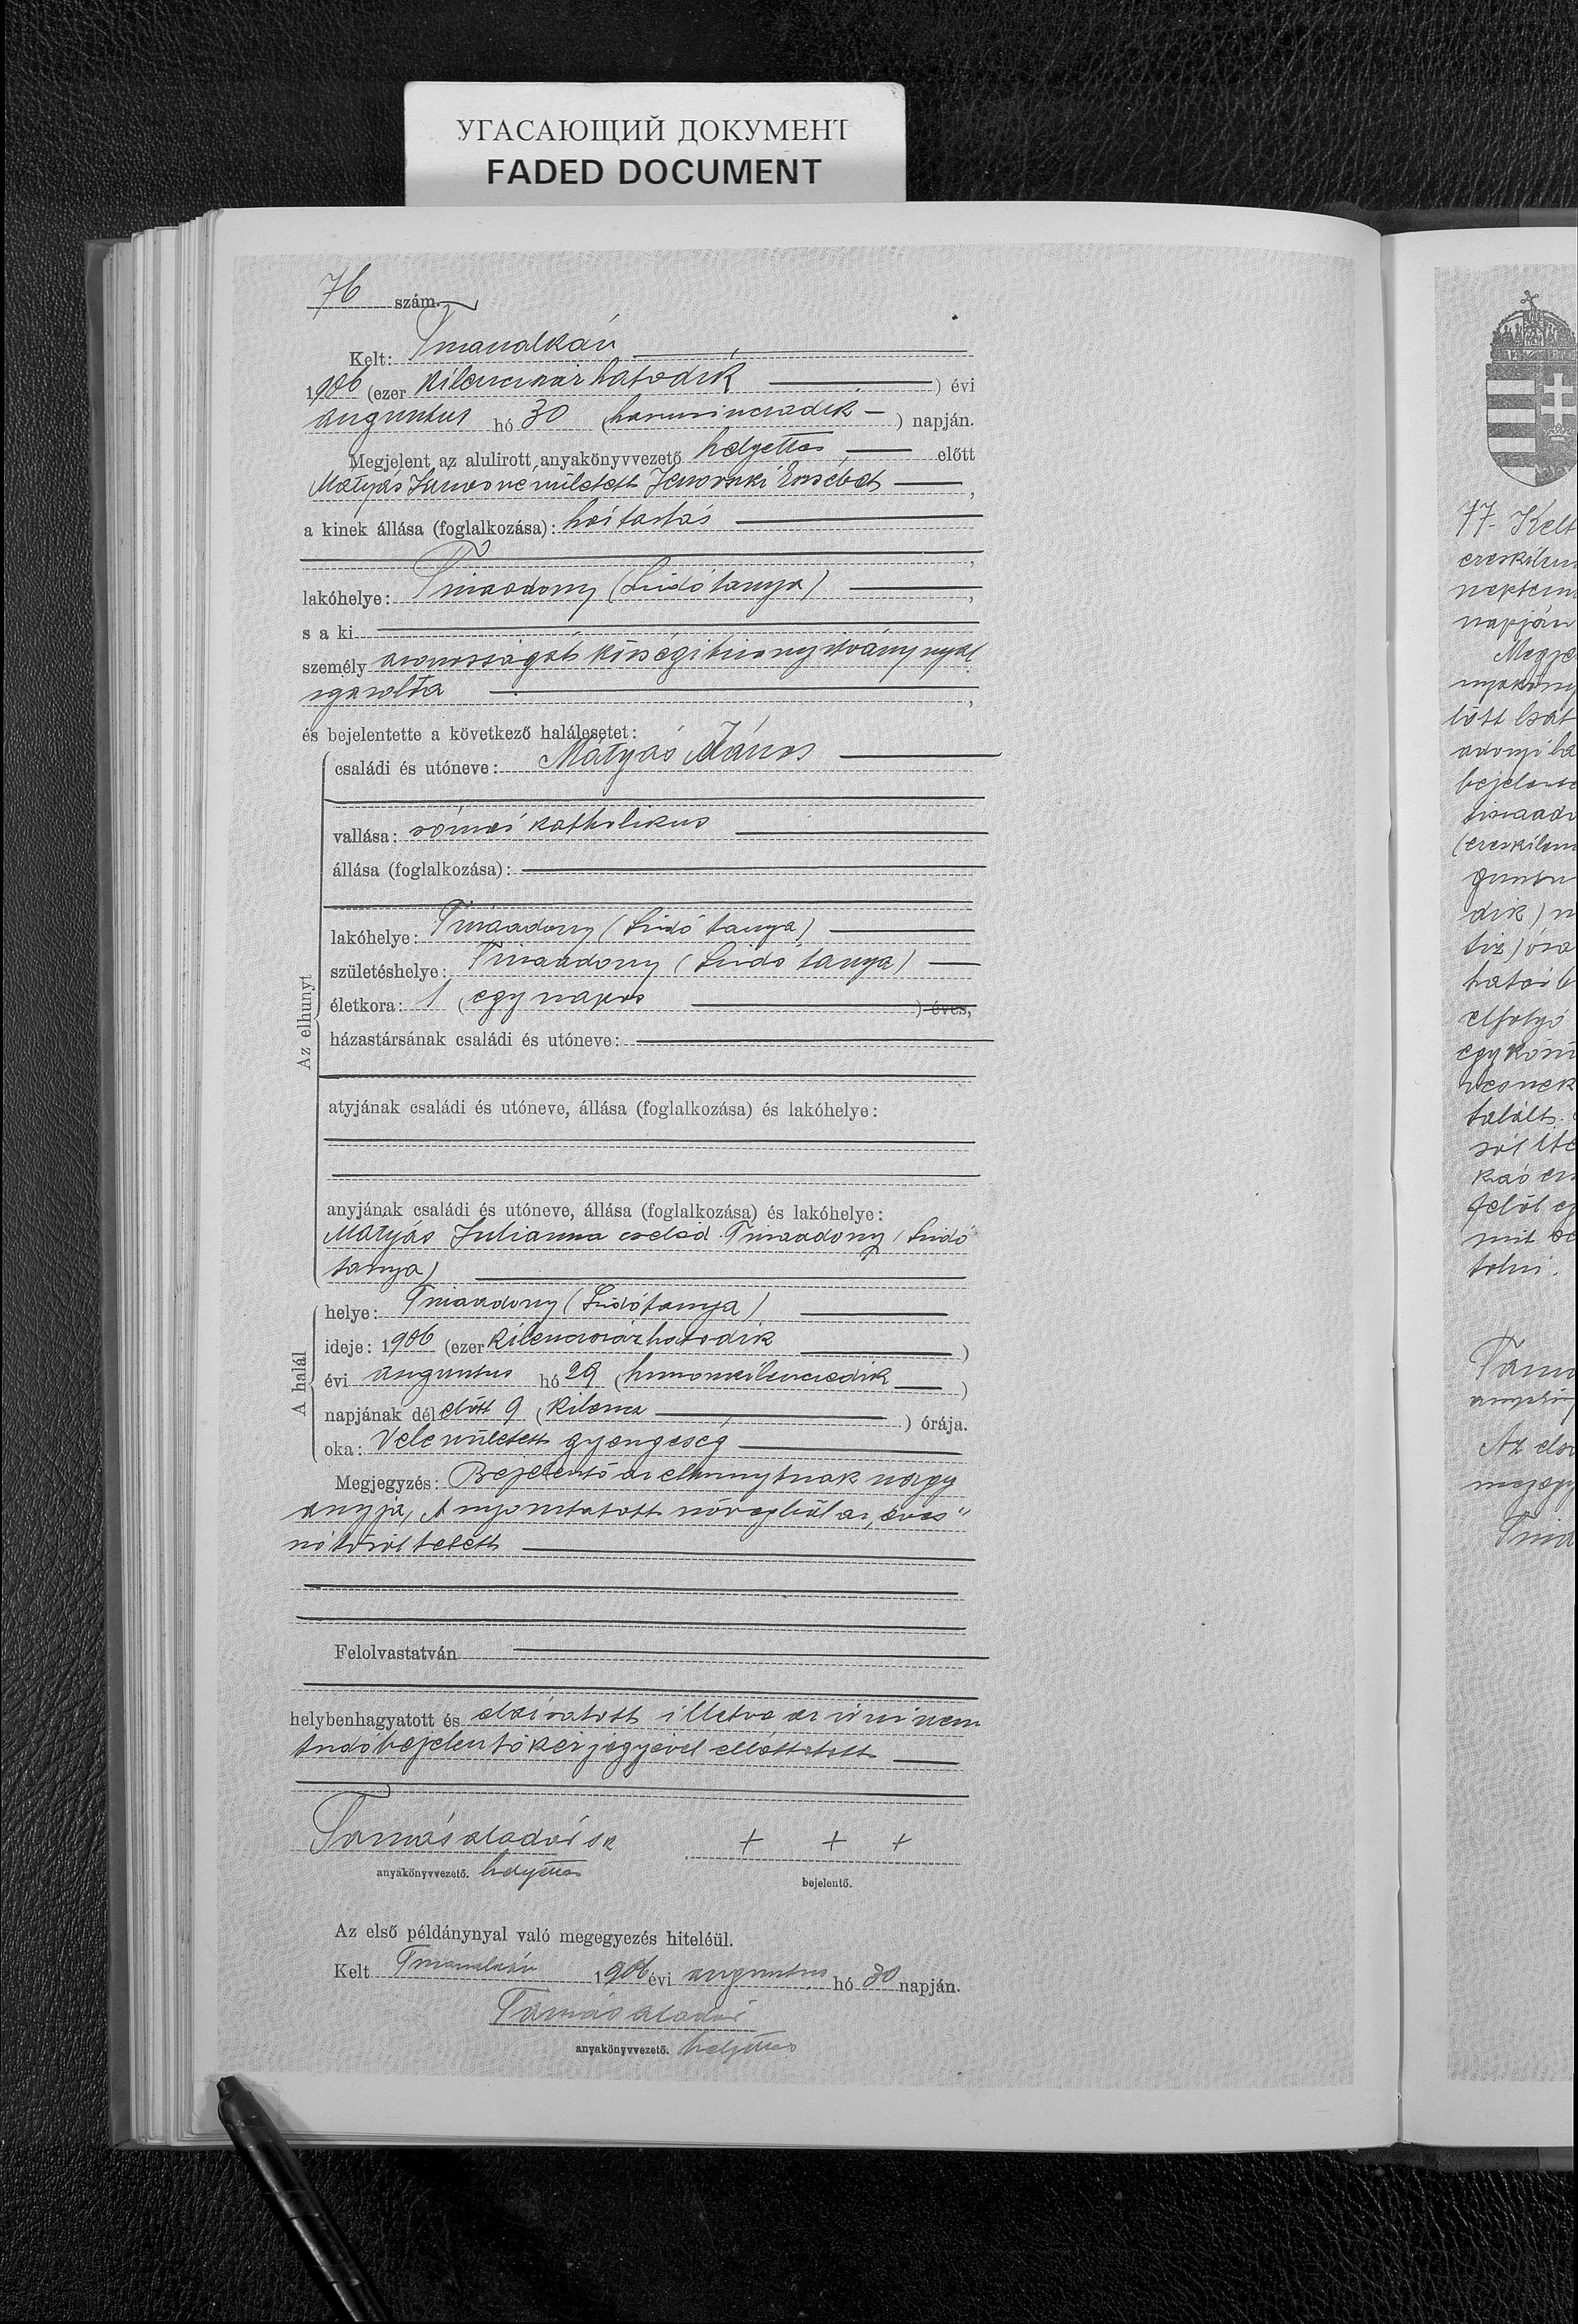 УГАСАЮЩИЙ ДОКУМЕНТ
FADED DOCUMENT
76 szám.
Kelt: Tiszasalkán
1906 (ezer kilenczszázhatodik ) évi
augusztus hó 30 (harminczadik ) napján.
Megjelent az alulirott anyakönyvvezető helyettes előtt
Mátyás Jánosné született Erzsébet ,
a kinek állása (foglalkozása): háztartás
,
lakóhelye: Tiszaadony (Lidó tanya) ,
s a ki
személy azonosságát községi bizonyitványnyal
igazolta ,
és bejelentette a következő halálesetet:
Az elhunyt
családi és utóneve: Mátyás János
vallása: római katholikus
állása (foglalkozása):
lakóhelye: Tiszaadony (Lidó tanya)
születéshelye: Tiszaadony (Lidó tanya)
életkora: 1 (egy napos ) éves,
házastársának családi és utóneve:
atyjának családi és utóneve, állása (foglalkozása) és lakóhelye:
anyjának családi és utóneve, állása (foglalkozása) és lakóhelye:
Mátyás Julianna cseléd Tiszaadony (Lidó
tanya)
A halál
helye: Tiszaadony (Lidó tanya)
ideje: 1906 (ezer kilenczszázhatodik )
évi augusztus hó 29 (huszonkilenczedik )
napjának dél előtt 9 (kilencz ) órája.
oka: Vele született gyengeség
Megjegyzés: Bejelentő az elhunytnak nagy
anyja, A nyomtatott szövegből az „éves“
szó töröltetett
Felolvastatván
helybenhagyatott és aláiratott illetve az irni nem
tudó bejelentő kézjegyével elláttatott
Tamás Aladár sk + + +
anyakönyvvezető. helyettes bejelentő.
Az első példánynyal való megegyezés hiteléül.
Kelt Tiszasalkán 1906 évi augusztus hó 30 napján.
Tamás Aladár
anyakönyvvezető. helyettes
77. Kelt
napján
Megje
tött
adonyi
tiz) óra
elfolyó
talált.
felöl
tolni.